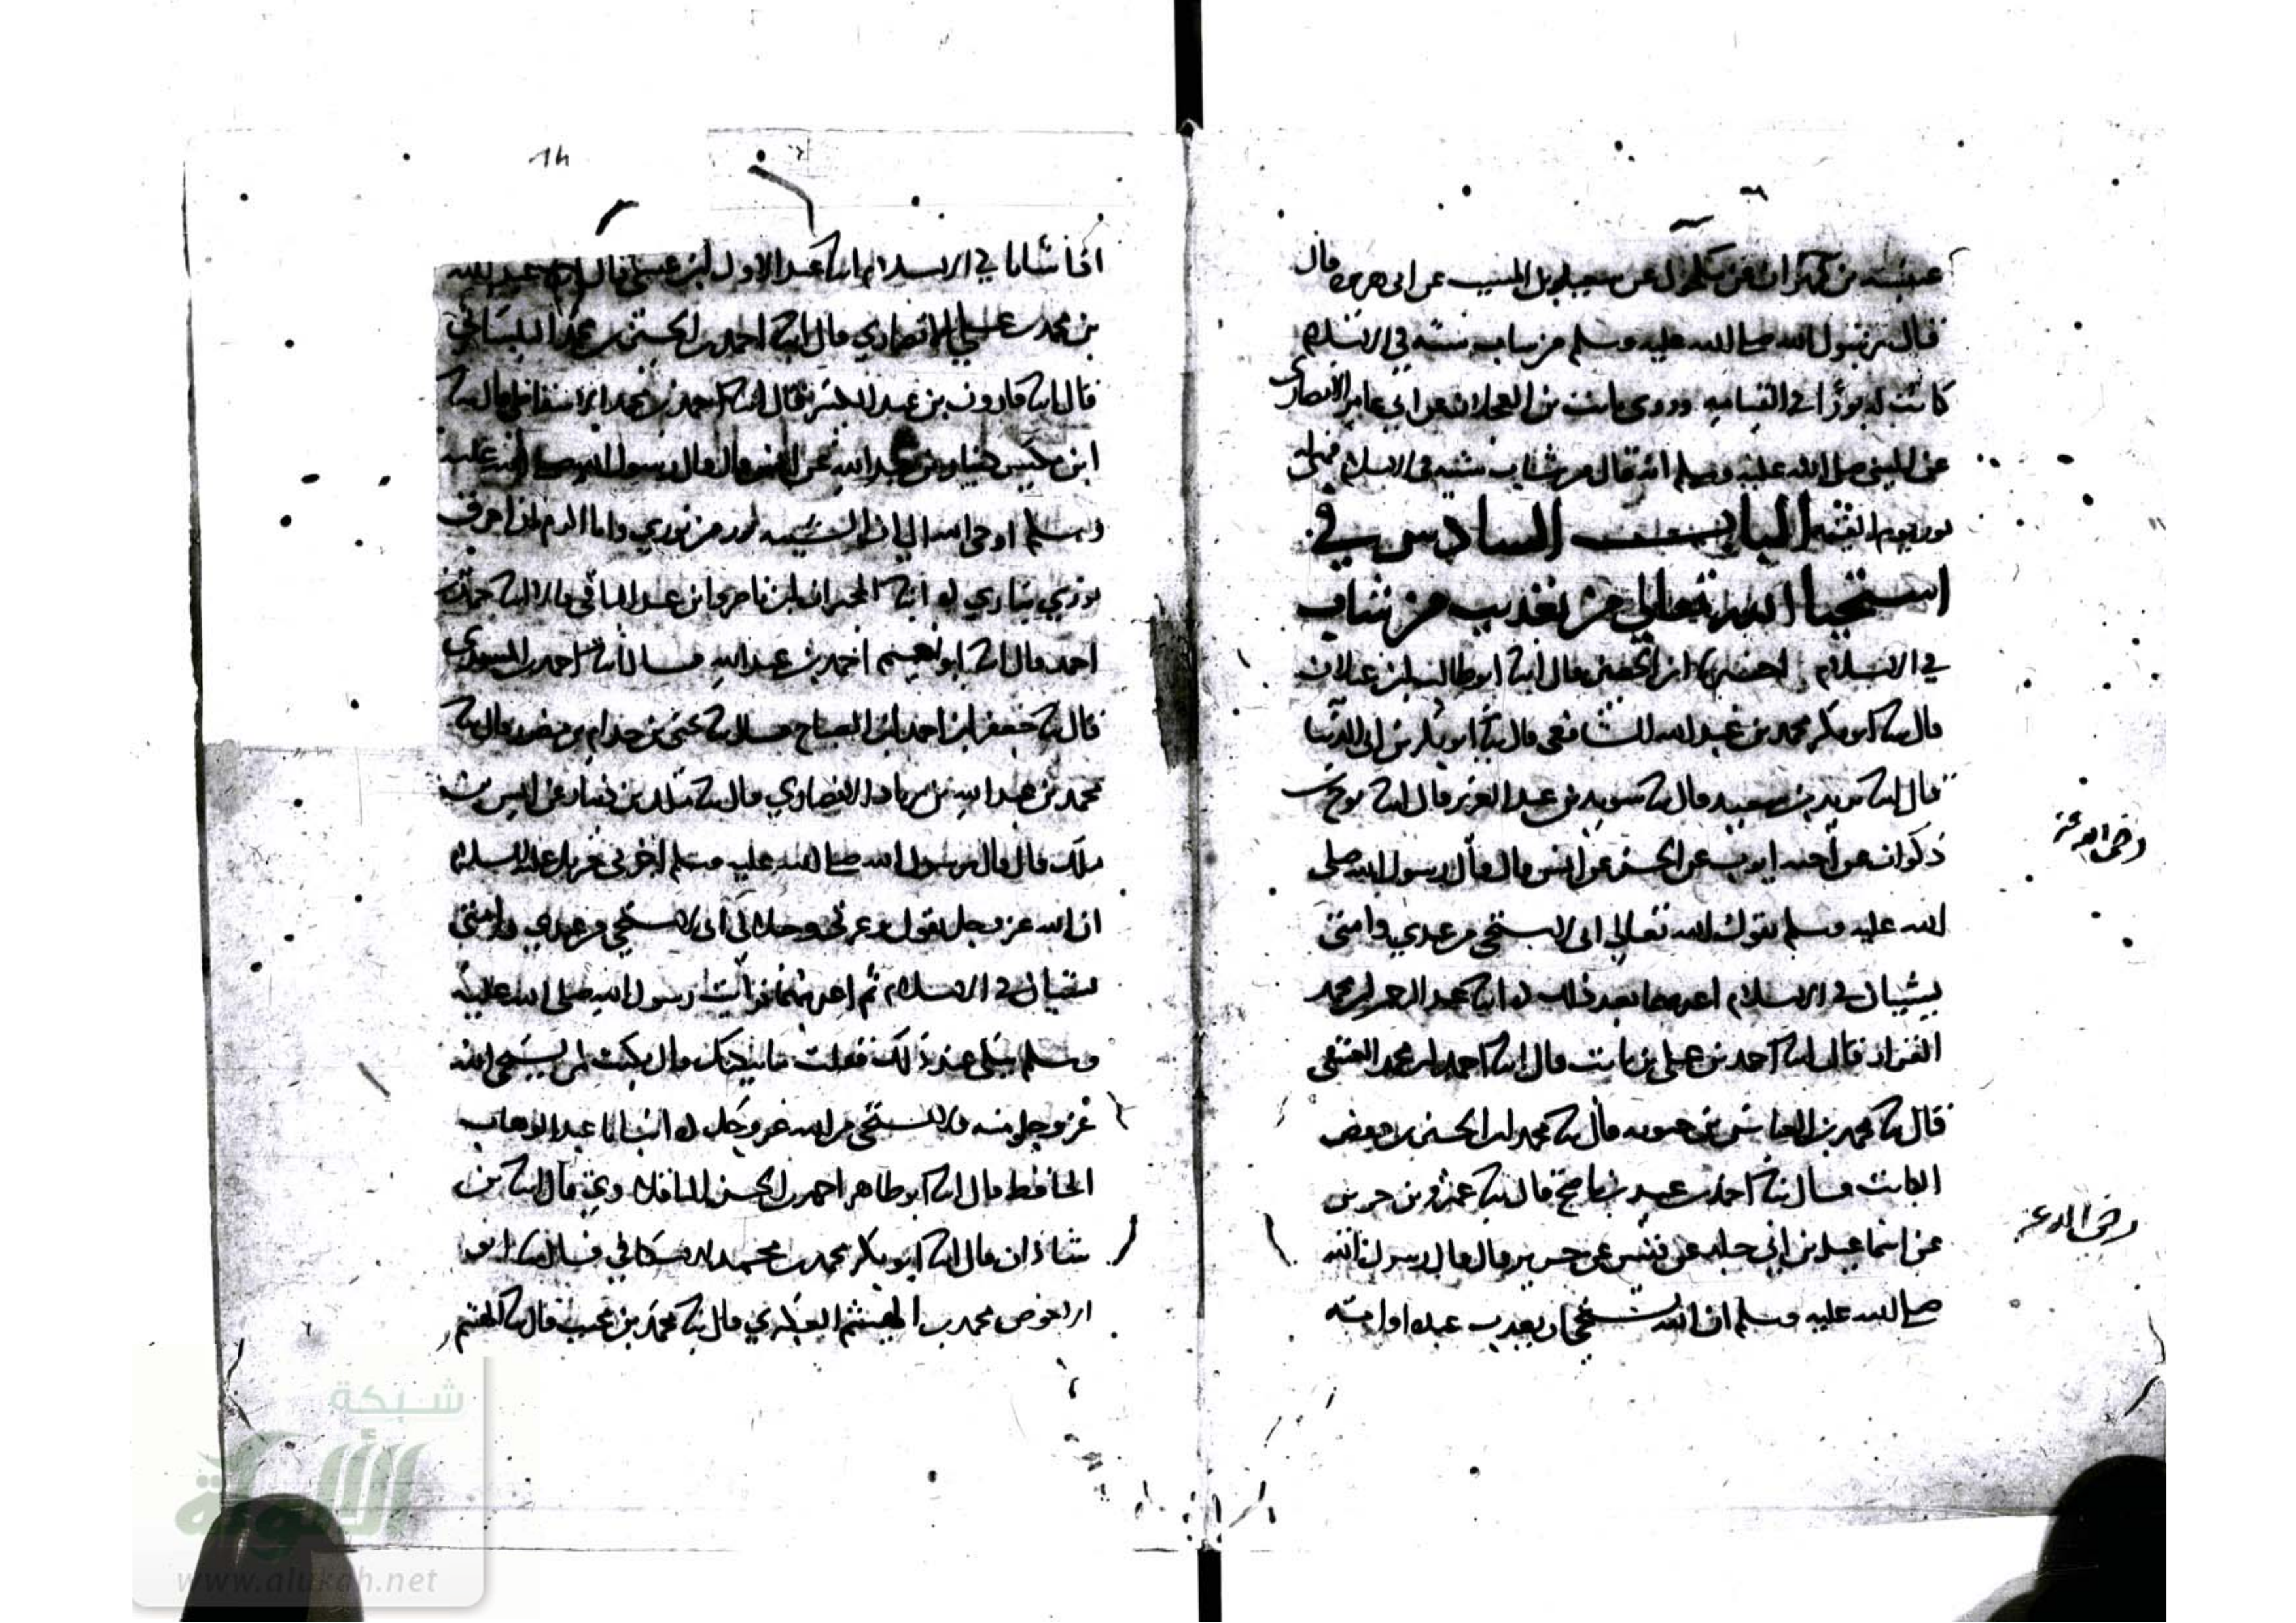 عن سعيد بن المسيب عن ابى هريره قال
قال رسول الله صلى الله عليه وسلم من شاب شيبه في الاسلام
كانت له نورًا في القيامه وروى ثابت بن العجلان عن ابي عامر الانصاري
عن النبي صلى الله عليه وسلم انه قال من شاب شيبه في الاسلام فهى له
نور يوم القيمه الباب السادس في
استحيا الله تعالى من تعذيب من شاب
في الاسلام اخبرنا ابن الحصين قال انبا ابو طالب ابن غيلان
قال انبا ابو بكر محمد بن عبد الله الشافعي قال ثنا ابو بكر بن ابي الدنيا
قال انبا سويد بن سعيد قال ثنا سويد بن عبد العزيز قال انبا نوح بن
ذكوان عن اخيه ايوب عن الحسن عن انس قال قال رسول الله صلى
رضى الله عنه
الله عليه وسلم يقول الله تعالى انى لاستحى من عبدي وامتى
يشيبان في الاسلام اعذبهما بعد ذلك انبا عبد الرحمن ابن محمد
القزاز قال انبا احمد بن علي بن ثابت قال انبا احمد ابن محمد العتيقى
قال ثنا محمد بن العباس بن حيويه قال ثنا محمد ابن الحسن بن
الكاتب قال ثنا احمد بن عبيد بن ناصح قال ثنا عمرو بن جرير
عن اسماعيل بن ابي خالد عن قيس عن جرير قال قال رسول الله
رضى الله عنه
صلى الله عليه وسلم ان الله يستحى ان يعذب عبده او امته
14
اذا شابا في الاسلام انبا عبد الاول ابن عيسى قال عبد الله
بن محمد الانصاري قال انبا احمد بن الحسن بن
قال انبا هارون بن قال انبا احمد بن محمد قال ثنا
ابن دينار بن عبد الله عن انس قال قال رسول الله صلى الله عليه
وسلم اوحى الله الي ان الشيب نور من نوري وانا اكرم ان احرق
نوري بناري انبا ابن ناصر وابن عبد الباقي قالا انبا حمد بن
احمد قال انبا ابو نعيم احمد بن عبد الله قال انبا احمد بن السندي
قال ثنا جعفر ابن احمد ابن الصباح قال ثنا قال ثنا
محمد بن عبد الله بن زياد الانصاري قال ثنا ملك بن دينار عن انس بن
ملك قال قال رسول الله صلى الله عليه وسلم اخبرني جبريل عليه السلام
ان الله عز وجل يقول وعزتى وجلالى انى لاستحى من عبدي وامتى
يشيبان في الاسلام ثم اعذبهما فرأيت رسول الله صلى الله عليه
وسلم يبكى عند ذلك فقلت ما يبكيك قال بكيت لمن يستحى الله
عز وجل منه ولا يستحى من الله عز وجل انبانا عبد الوهاب
الحافظ قال انبا ابو طاهر احمد بن الحسن الباقلاوي قال انبا بن
شاذان قال انبا ابو بكر محمد بن محمد الاسكافي قال ثنا ابو
الاحوص محمد بن الهيثم العكبري قال ثنا محمد بن قال ثنا الهيثم
شبكة
الألوكة
www.alukah.net